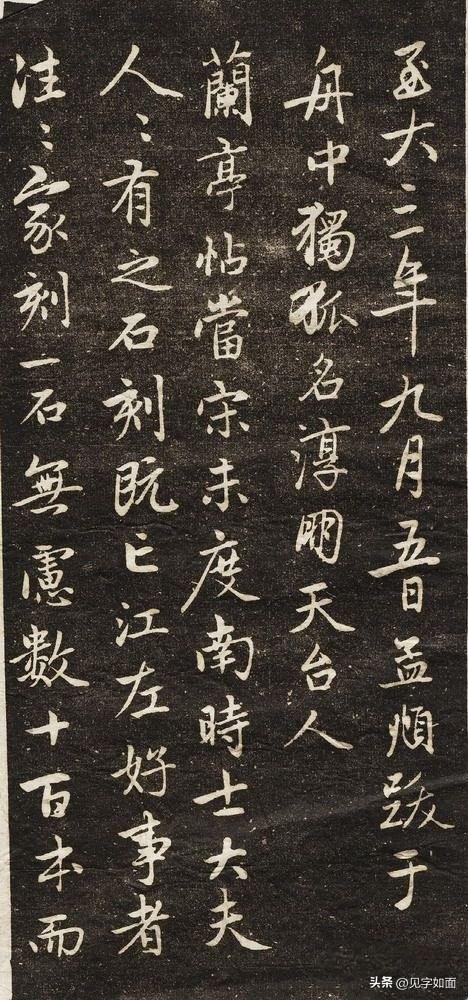 至大三年九月五日孟頫跋于
舟中獨孤名淳朋天台人
蘭亭帖當宋未度南時士大夫
人〻有之石刻既亡江左好事者
往〻家刻一石無慮數十百本而
头条 @见字如面